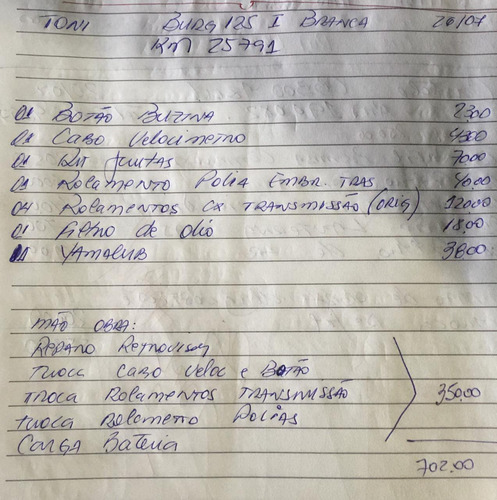 TONI BURG 125 I BRANCA 26/07
KM 25791
01 BOTÃO BUZINA 23,00
01 CABO VELOCIMETRO 43,00
01 KIT JUNTAS 70,00
01 ROLAMENTO POLIA EMBR. TRAS 40,00
04 ROLAMENTOS CX TRANSMISSÃO (ORIG) 120,00
01 FILTRO DE OLIO 18,00
01 YAMALUB 38,00
MÃO OBRA:
REPARO RETROVISOR
TROCA CABO VELOC E BOTÃO
TROCA ROLAMENTOS TRANSMISSÃO 350,00
TROCA ROLAMETO POLIAS
CARGA BATERIA
702,00